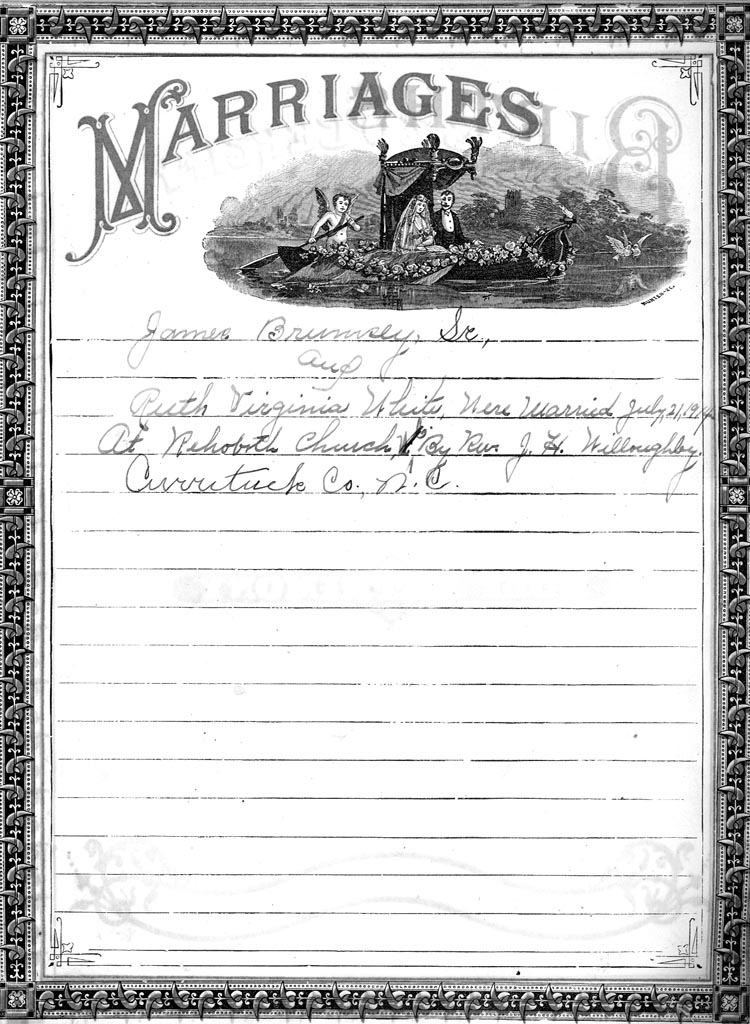 MARRIAGES
James Brumsey, Sr.,
and
Ruth Virginia White, Were Married July, 21, 1914
At Rehoboth Church, By Rev. J. H. Willoughby.
Currituck Co., N.C.